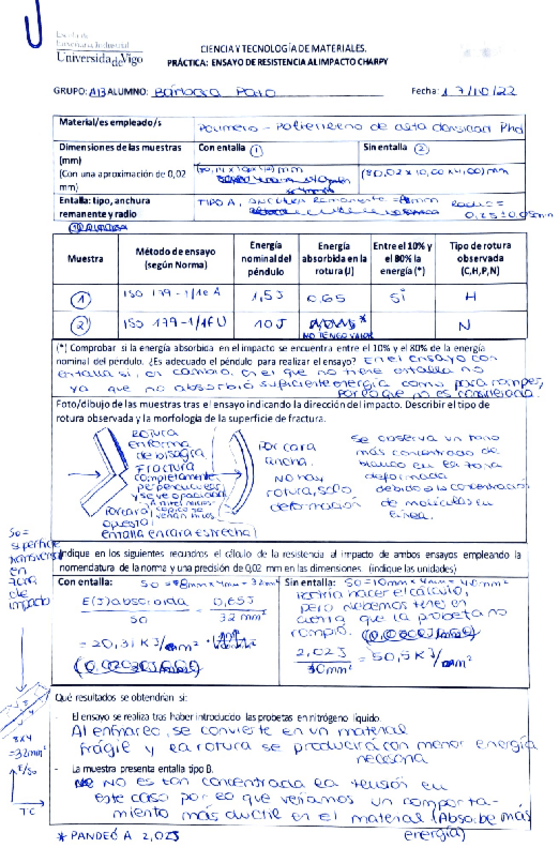 Escola de
Enxeñaría Industrial
Universida de Vigo
CIENCIA Y TECNOLOGÍA DE MATERIALES.
PRÁCTICA: ENSAYO DE RESISTENCIA AL IMPACTO CHARPY
GRUPO: A13 ALUMNO: Bárbara Fecha: 17/10/22
Material/es empleado/s
Polímero - Polietileno de alta densidad PhD
Dimensiones de las muestras (mm)
(Con una aproximación de 0,02 mm)
Con entalla ①
mm
Sin entalla ②
(80,02 x 10,00 x 4,00) mm
Entalla: tipo, anchura remanente y radio
TIPO A, anchura remanente = 8mm Radio = 0,25 ± 0,05mm
Muestra
Método de ensayo (según Norma)
Energía nominal del péndulo
Energía absorbida en la rotura (J)
Entre el 10% y el 80% la energía (*)
Tipo de rotura observada (C,H,P,N)
① ISO 179-1/1eA 7,5J 0,65 Sí H
② ISO 179-1/1fU 10J * NO TENGO VALOR N
(*) Comprobar si la energía absorbida en el impacto se encuentra entre el 10% y el 80% de la energía
nominal del péndulo. ¿Es adecuado el péndulo para realizar el ensayo? En el ensayo con
entalla sí, en cambio, en el que no tiene entalla no
ya que no absorbió suficiente energía como para romper,
por lo que no es considerada.
Foto/dibujo de las muestras tras el ensayo indicando la dirección del impacto. Describir el tipo de
rotura observada y la morfología de la superficie de fractura.
Rotura
en forma
de bisagra
Fractura
completamente
perpendicular
y se ve opacidad
Por cara
opuesta
entalla en cara estrecha
Por cara
ancha.
No hay
rotura, solo
deformación
Se observa un tono
más concentrado de
blanco en la zona
deformada
debido a la concentración
de moléculas en
línea.
So =
superficie
transversal
en
zona
de
impacto
Indique en los siguientes recuadros el cálculo de la resistencia al impacto de ambos ensayos empleando la
nomenclatura de la norma y una precisión de 0,02 mm en las dimensiones. (indique las unidades)
Con entalla: So = 8mm x 4mm = 32mm²
E(J) absorbida / So = 0,65J / 32 mm²
= 20,31 KJ/m²
Sin entalla: So = 10mm x 4mm = 40mm²
Podría hacer el cálculo,
pero debemos tener en
cuenta que la probeta no
rompió.
= 50,5 KJ/m²
Qué resultados se obtendrían si:
- El ensayo se realiza tras haber introducido las probetas en nitrógeno líquido.
Al enfriarlo, se convierte en un material
frágil y la rotura se producirá con menor energía
necesaria
- La muestra presenta entalla tipo B.
No es tan concentrada la tensión en
este caso por lo que veríamos un comporta-
miento más dúctil en el material (Absorbe más
energía)
8x4
=32mm²
E/So
TºC
* PANDEÓ A 2,02J